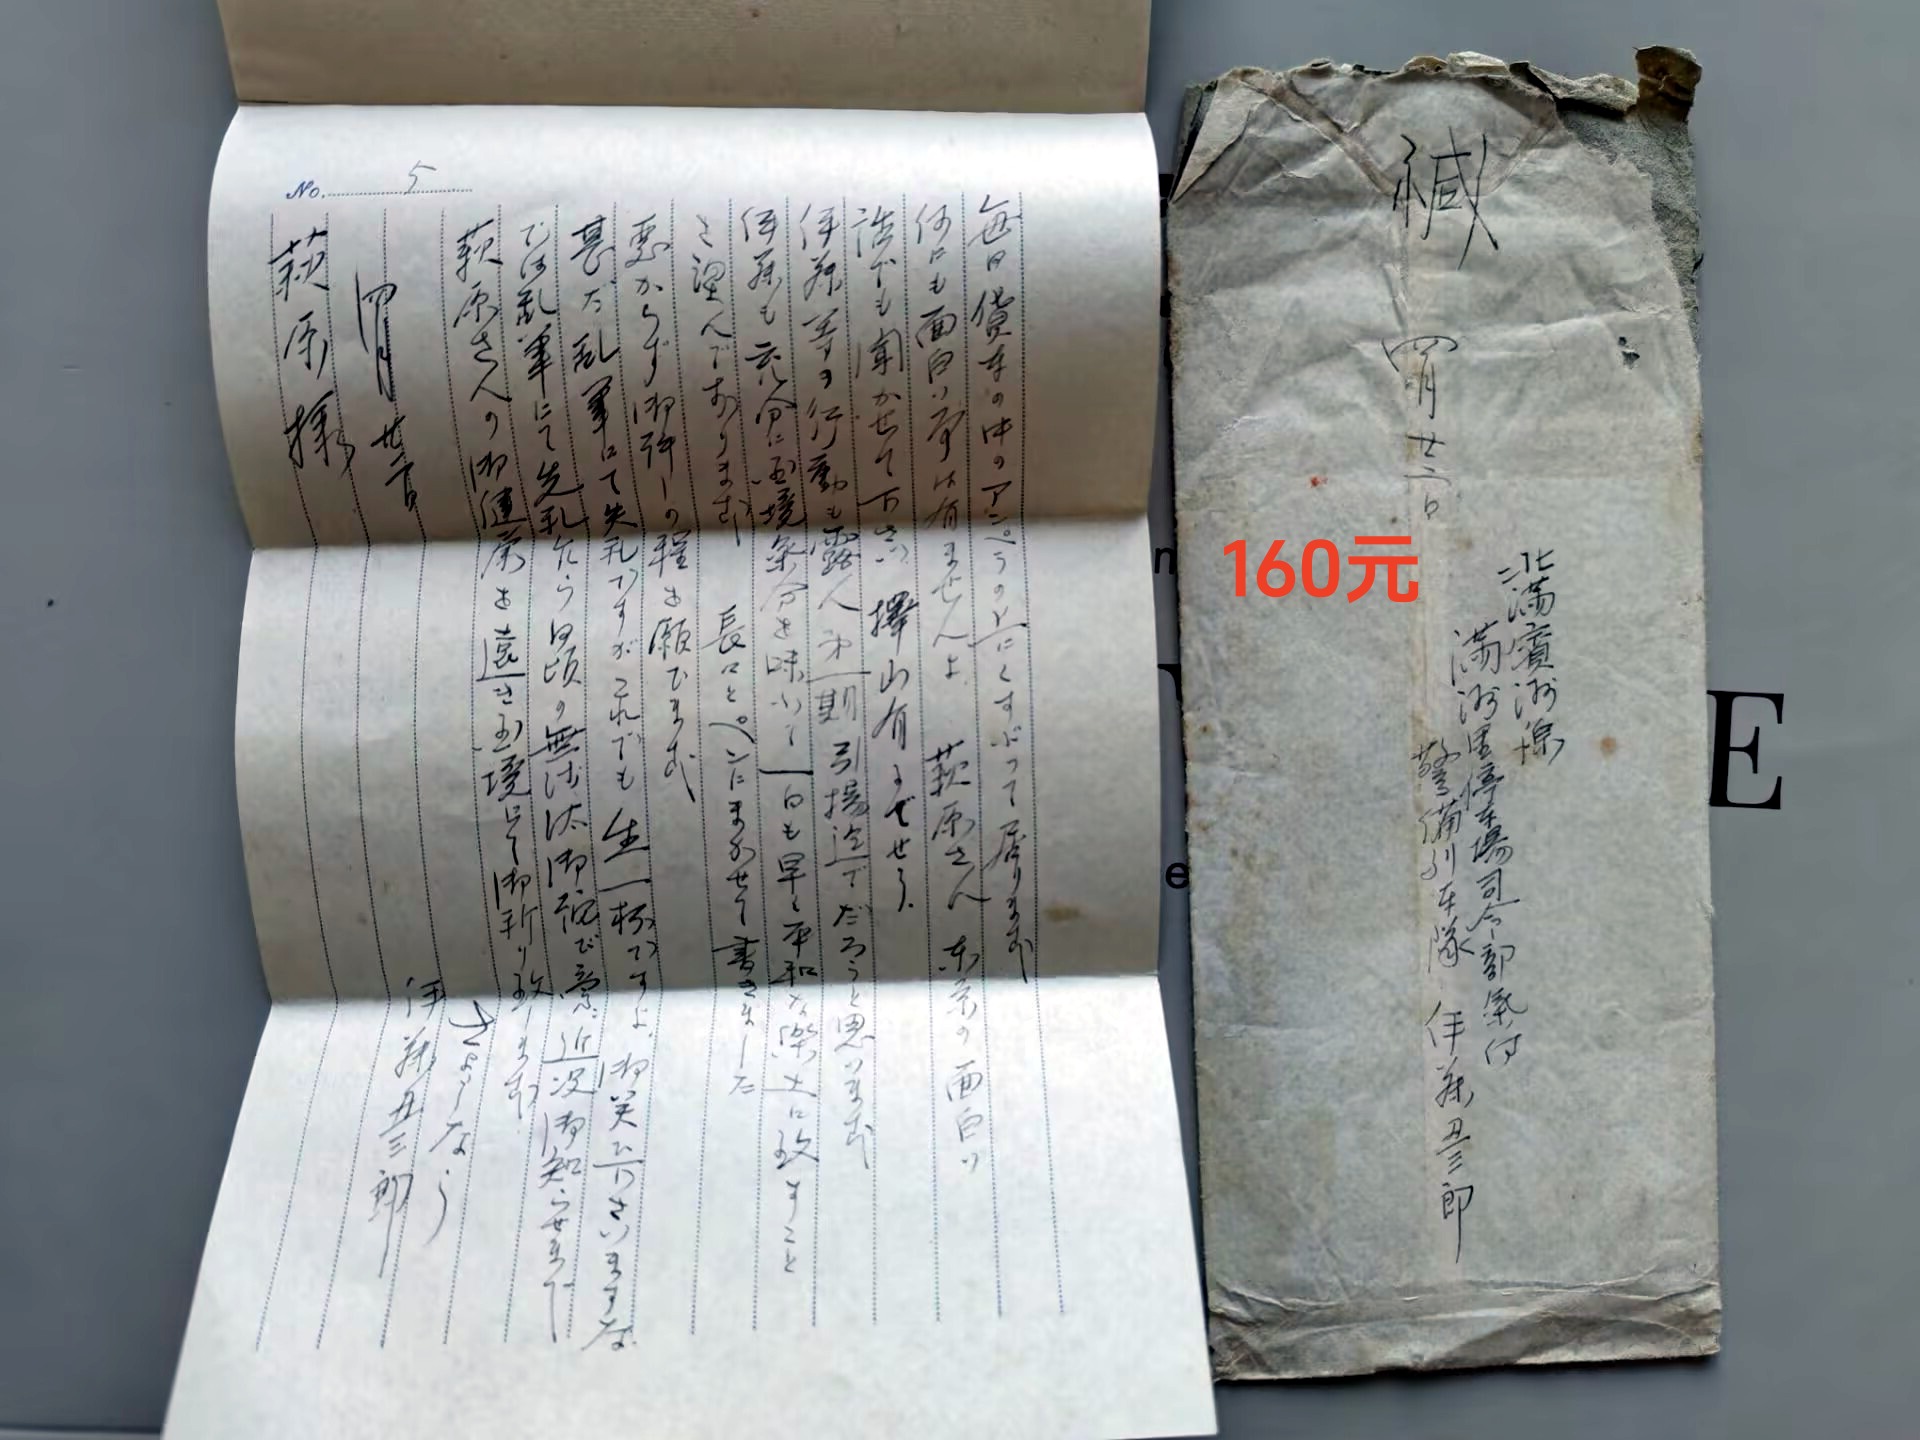 No. 5
毎日貨車の中のアンペラの上にくすぶつて居ります
何にも面白い事は有ませんよ 萩原さん 東京の面白い
話でも聞かせて下さい 擇山有るでせう、
伊藤等の行動も露人第一期引揚迄でだろうと思います
伊藤も充分に国境気分を味ひて一日も早く平和な楽土に致すこと
を望んでおります 長々とペンにまかせて書きました
悪からず御許しの程を願ひます
甚だ乱筆にて失礼ですがこれでも生一杯ですよ、御笑ひ下さいますな
では乱筆にて先礼乍ら日頃の無沙汰御詫び旁、近況御知らせまで
萩原さんの御健康を遠き国境にて御祈り致します
さよーなら
四月廿二日 伊藤丑三郎
萩原様
緘
四月廿二日
北満濱洲線
満洲里停車場司令部気付
警備列車隊 伊藤丑三郎
160元
E
e
n